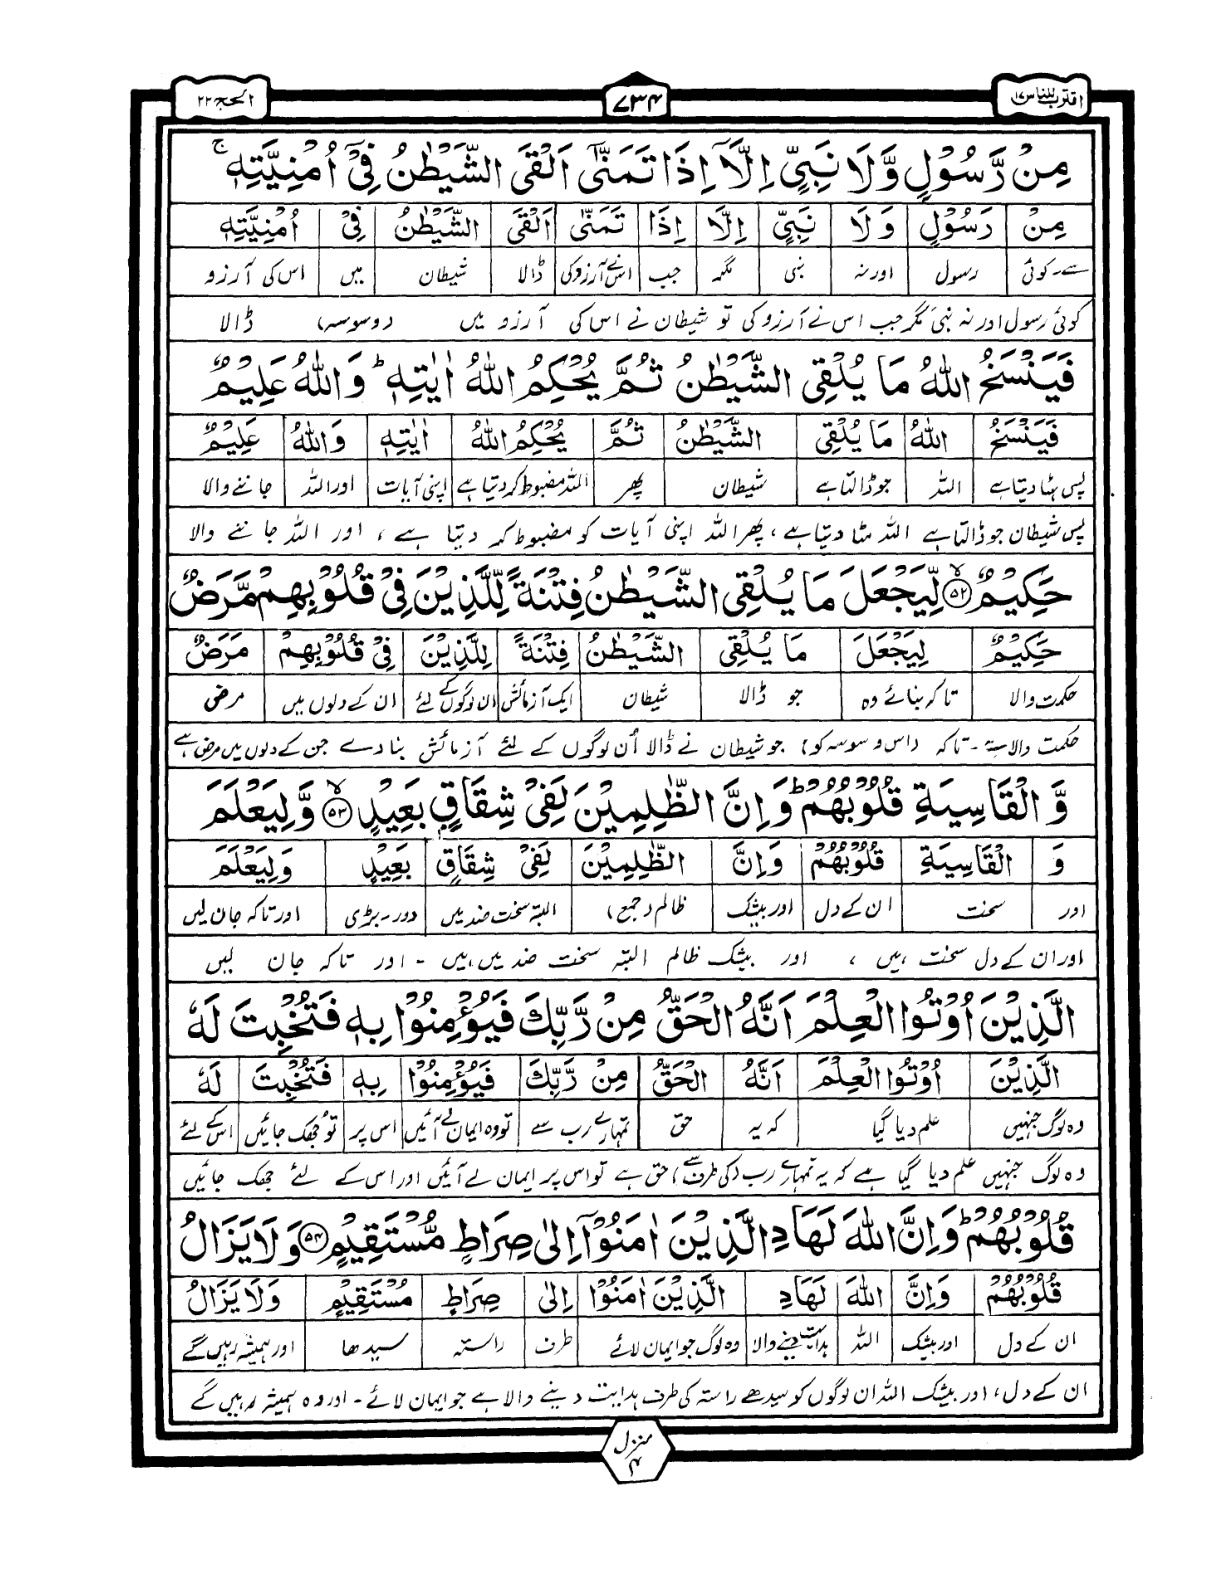 اقترب للناس ۱۷
۷۳۴
الحج ۲۲
مِنْ رَّسُوْلٍ وَّلَا نَبِيٍّ اِلَّآ اِذَا تَمَنّٰىٓ اَلْقَى الشَّيْطٰنُ فِيْٓ اُمْنِيَّتِهٖ ۚ
مِنْ رَسُوْلٍ وَلَا نَبِيٍّ اِلَّا اِذَا تَمَنّٰى اَلْقَى الشَّيْطٰنُ فِيْ اُمْنِيَّتِهٖ
سے۔ کوئی رسول اور نہ نبی مگر جب اس نے آرزو کی ڈالا شیطان میں اس کی آرزو
کوئی رسول اور نہ نبی مگر جب اس نے آرزو کی تو شیطان نے اس کی آرزو میں (وسوسہ) ڈالا
فَيَنْسَخُ اللّٰهُ مَا يُلْقِي الشَّيْطٰنُ ثُمَّ يُحْكِمُ اللّٰهُ اٰيٰتِهٖ ؕ وَاللّٰهُ عَلِيْمٌ
فَيَنْسَخُ اللّٰهُ مَا يُلْقِي الشَّيْطٰنُ ثُمَّ يُحْكِمُ اللّٰهُ اٰيٰتِهٖ وَاللّٰهُ عَلِيْمٌ
پس ہٹا دیتا ہے اللہ جو ڈالتا ہے شیطان پھر اللہ مضبوط کر دیتا ہے اپنی آیات اور اللہ جاننے والا
پس شیطان جو ڈالتا ہے اللہ مٹا دیتا ہے، پھر اللہ اپنی آیات کو مضبوط کر دیتا ہے، اور اللہ جاننے والا
حَكِيْمٌ ۙ﴿۵۲﴾ لِّيَجْعَلَ مَا يُلْقِي الشَّيْطٰنُ فِتْنَةً لِّلَّذِيْنَ فِيْ قُلُوْبِهِمْ مَّرَضٌ
حَكِيْمٌ لِيَجْعَلَ مَا يُلْقِي الشَّيْطٰنُ فِتْنَةً لِلَّذِيْنَ فِيْ قُلُوْبِهِمْ مَرَضٌ
حکمت والا تاکہ بنائے وہ جو ڈالا شیطان ایک آزمائش ان لوگوں کے لئے ان کے دلوں میں مرض
حکمت والا ہے۔ تاکہ (اس وسوسہ کو) جو شیطان نے ڈالا اُن لوگوں کے لئے آزمائش بنا دے جن کے دلوں میں مرض ہے
وَّالْقَاسِيَةِ قُلُوْبُهُمْ ؕ وَاِنَّ الظّٰلِمِيْنَ لَفِيْ شِقَاقٍۭ بَعِيْدٍ ۙ﴿۵۳﴾ وَّلِيَعْلَمَ
وَ الْقَاسِيَةِ قُلُوْبُهُمْ وَاِنَّ الظّٰلِمِيْنَ لَفِيْ شِقَاقٍ بَعِيْدٍ وَلِيَعْلَمَ
اور سخت ان کے دل اور بیشک ظالم (جمع) البتہ سخت ضد میں دور۔ بڑی اور تاکہ جان لیں
اور ان کے دل سخت ہیں، اور بیشک ظالم البتہ سخت ضد میں ہیں۔ اور تاکہ جان لیں
الَّذِيْنَ اُوْتُوا الْعِلْمَ اَنَّهُ الْحَقُّ مِنْ رَّبِّكَ فَيُؤْمِنُوْا بِهٖ فَتُخْبِتَ لَهٗ
الَّذِيْنَ اُوْتُوا الْعِلْمَ اَنَّهُ الْحَقُّ مِنْ رَّبِّكَ فَيُؤْمِنُوْا بِهٖ فَتُخْبِتَ لَهٗ
وہ لوگ جنہیں علم دیا گیا کہ یہ حق تمہارے رب سے تو وہ ایمان لے آئیں اس پر تو جھک جائیں اس کے لئے
وہ لوگ جنہیں علم دیا گیا ہے کہ یہ تمہارے رب (کی طرف سے) حق ہے تو اس پر ایمان لے آئیں اور اس کے لئے جھک جائیں
قُلُوْبُهُمْ ؕ وَاِنَّ اللّٰهَ لَهَادِ الَّذِيْنَ اٰمَنُوْٓا اِلٰى صِرَاطٍ مُّسْتَقِيْمٍ ﴿۵۴﴾ وَلَا يَزَالُ
قُلُوْبُهُمْ وَاِنَّ اللّٰهَ لَهَادِ الَّذِيْنَ اٰمَنُوْا اِلٰى صِرَاطٍ مُسْتَقِيْمٍ وَلَا يَزَالُ
ان کے دل اور بیشک اللہ ہدایت دینے والا وہ لوگ جو ایمان لائے طرف راستہ سیدھا اور ہمیشہ رہیں گے
ان کے دل، اور بیشک اللہ ان لوگوں کو سیدھے راستہ کی طرف ہدایت دینے والا ہے جو ایمان لائے۔ اور وہ ہمیشہ رہیں گے
منزل
۴